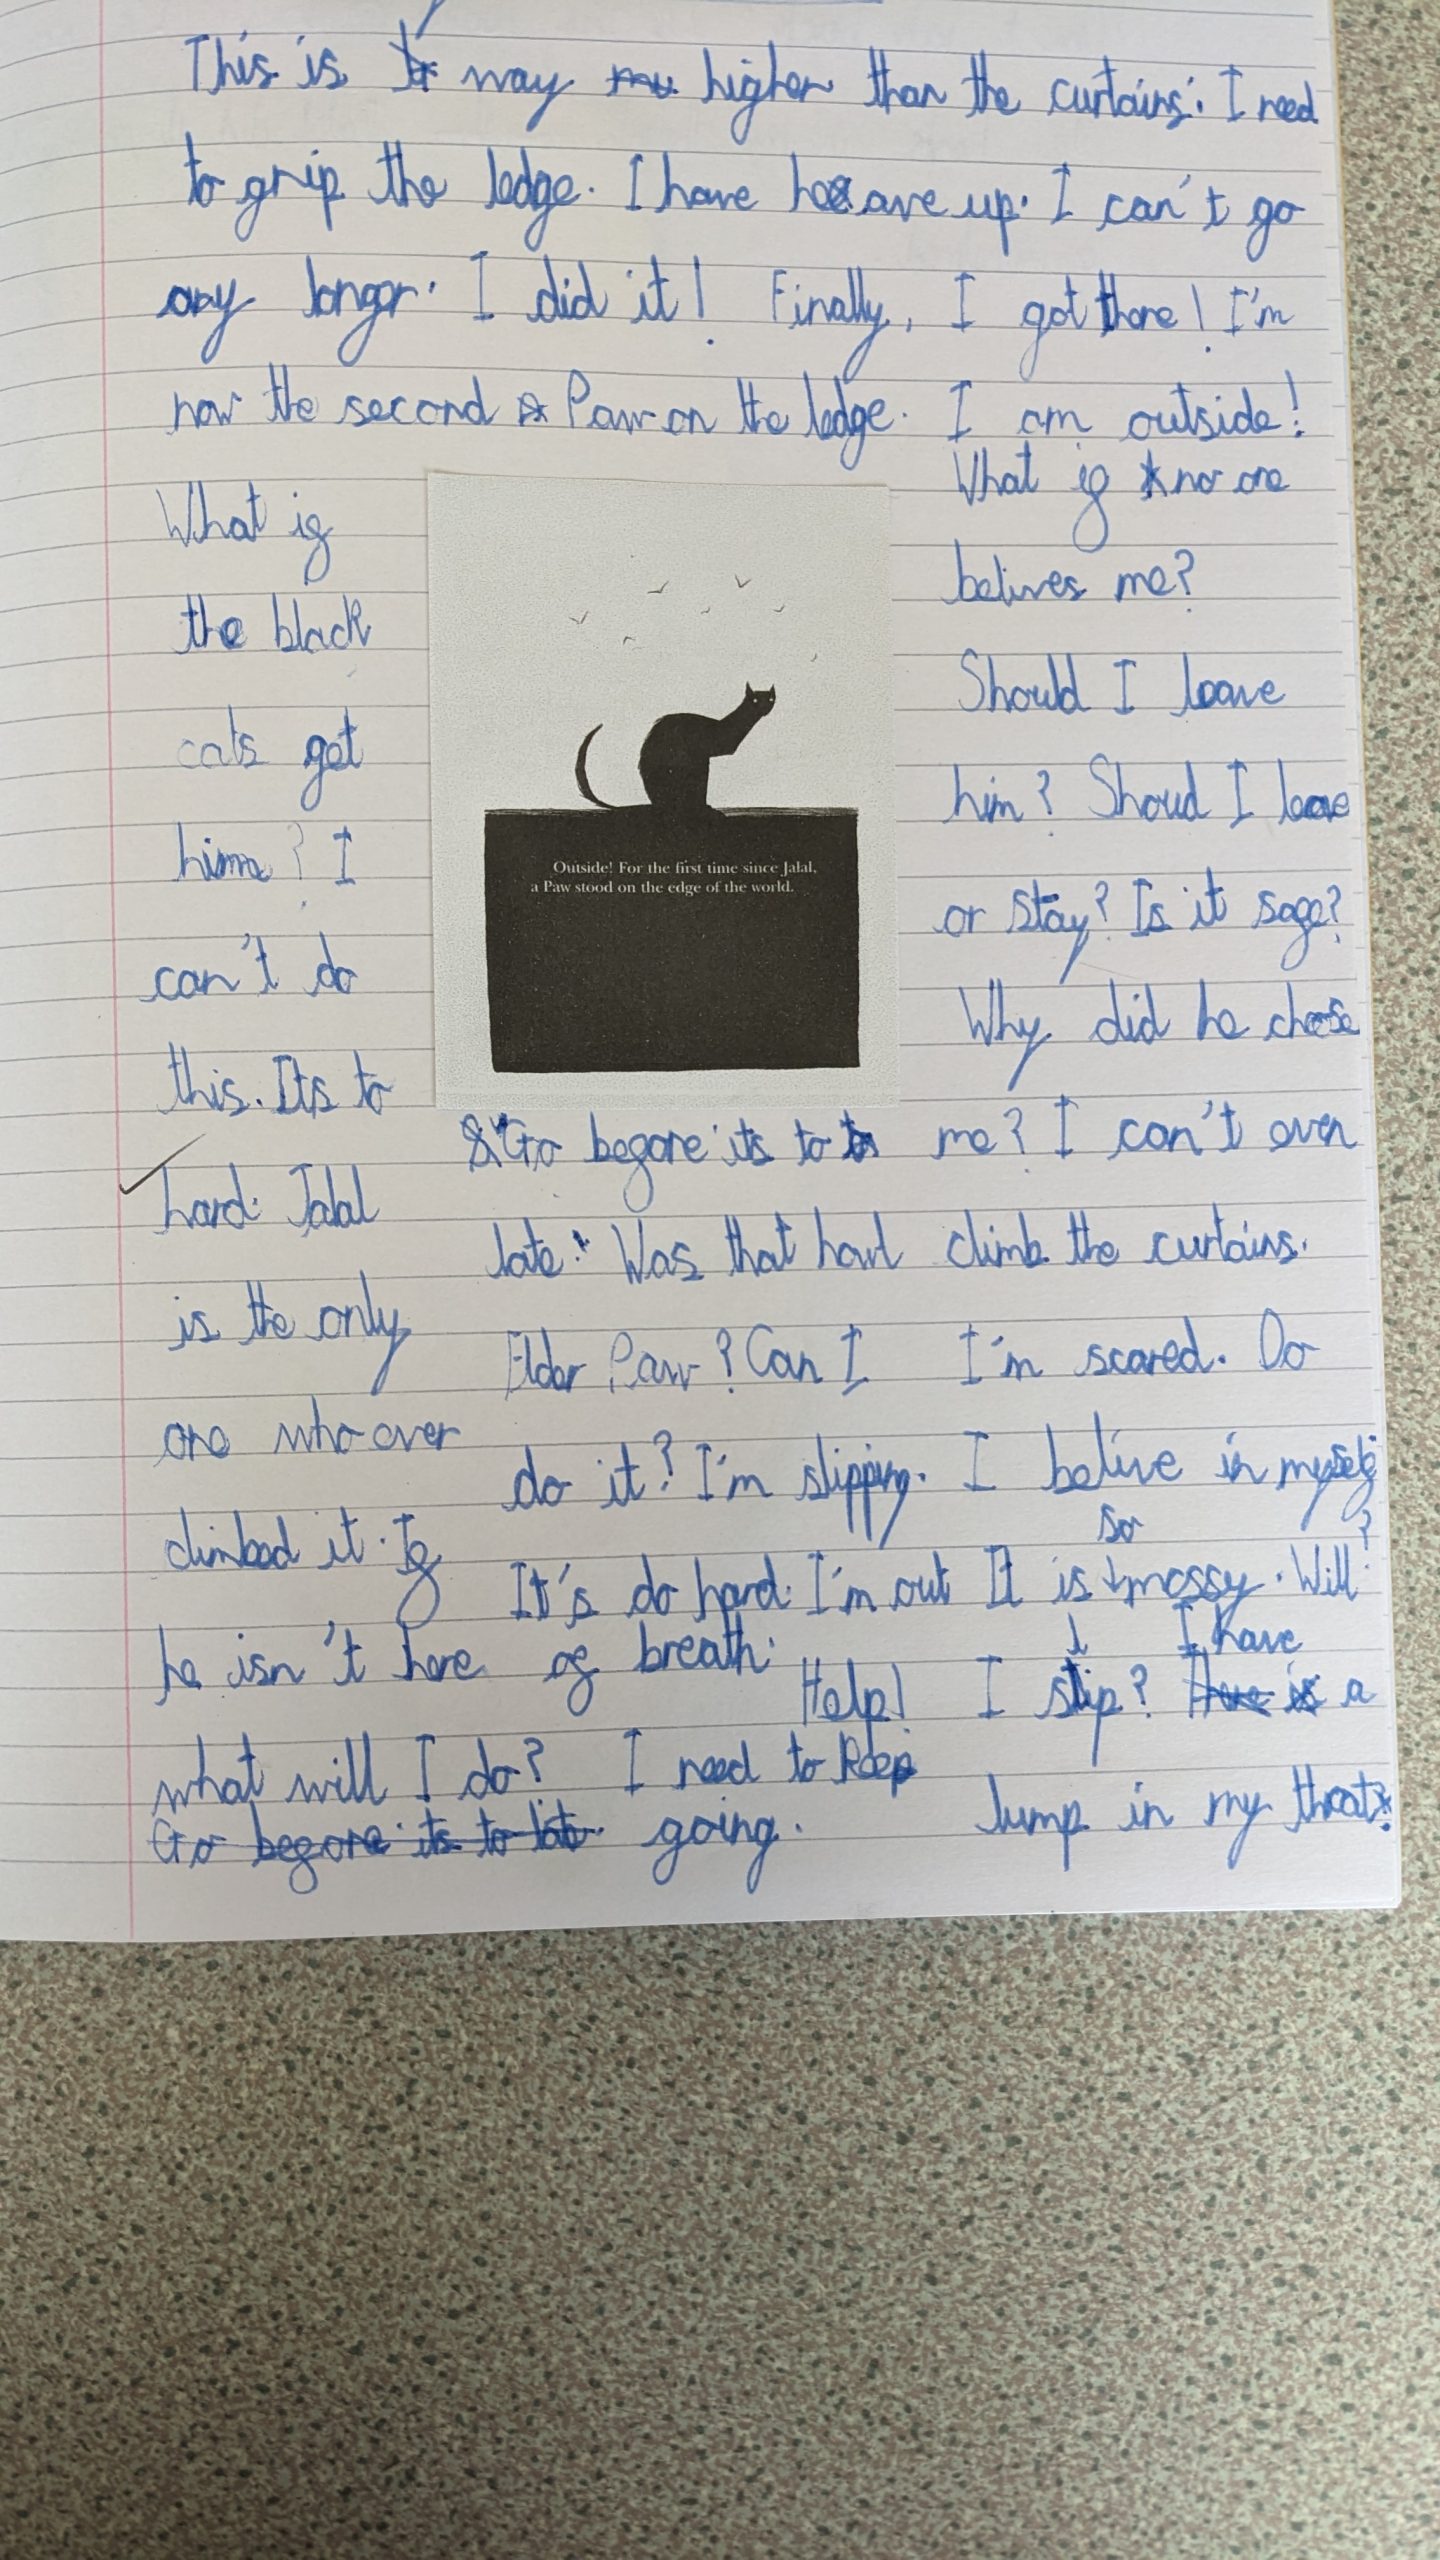 This is way higher than the curtains. I need
to grip the ledge. I have heave up. I can't go
any longer. I did it! Finally, I got there! I'm
now the second Paw on the ledge. I am outside!
What if
the black
cats get
him? I
can't do
this. Its to
hard. Jalal
is the only
one who ever
climbed it. If
he isn't here
what will I do?
Go before its to late
Outside! For the first time since Jalal,
a Paw stood on the edge of the world.
"Go before its to
late." Was that howl
Elder Paw? Can I
do it? I'm slipping.
It's do hard. I'm out
of breath.
Help!
I need to keep
going.
What if no one
belives me?
Should I leave
him? Shoud I leave
or stay? Is it safe?
Why did he chose
me? I can't even
climb the curtains.
I'm scared. Do
I belive in myself?
It is so mossy. Will
I slip? I have a
lump in my throat.